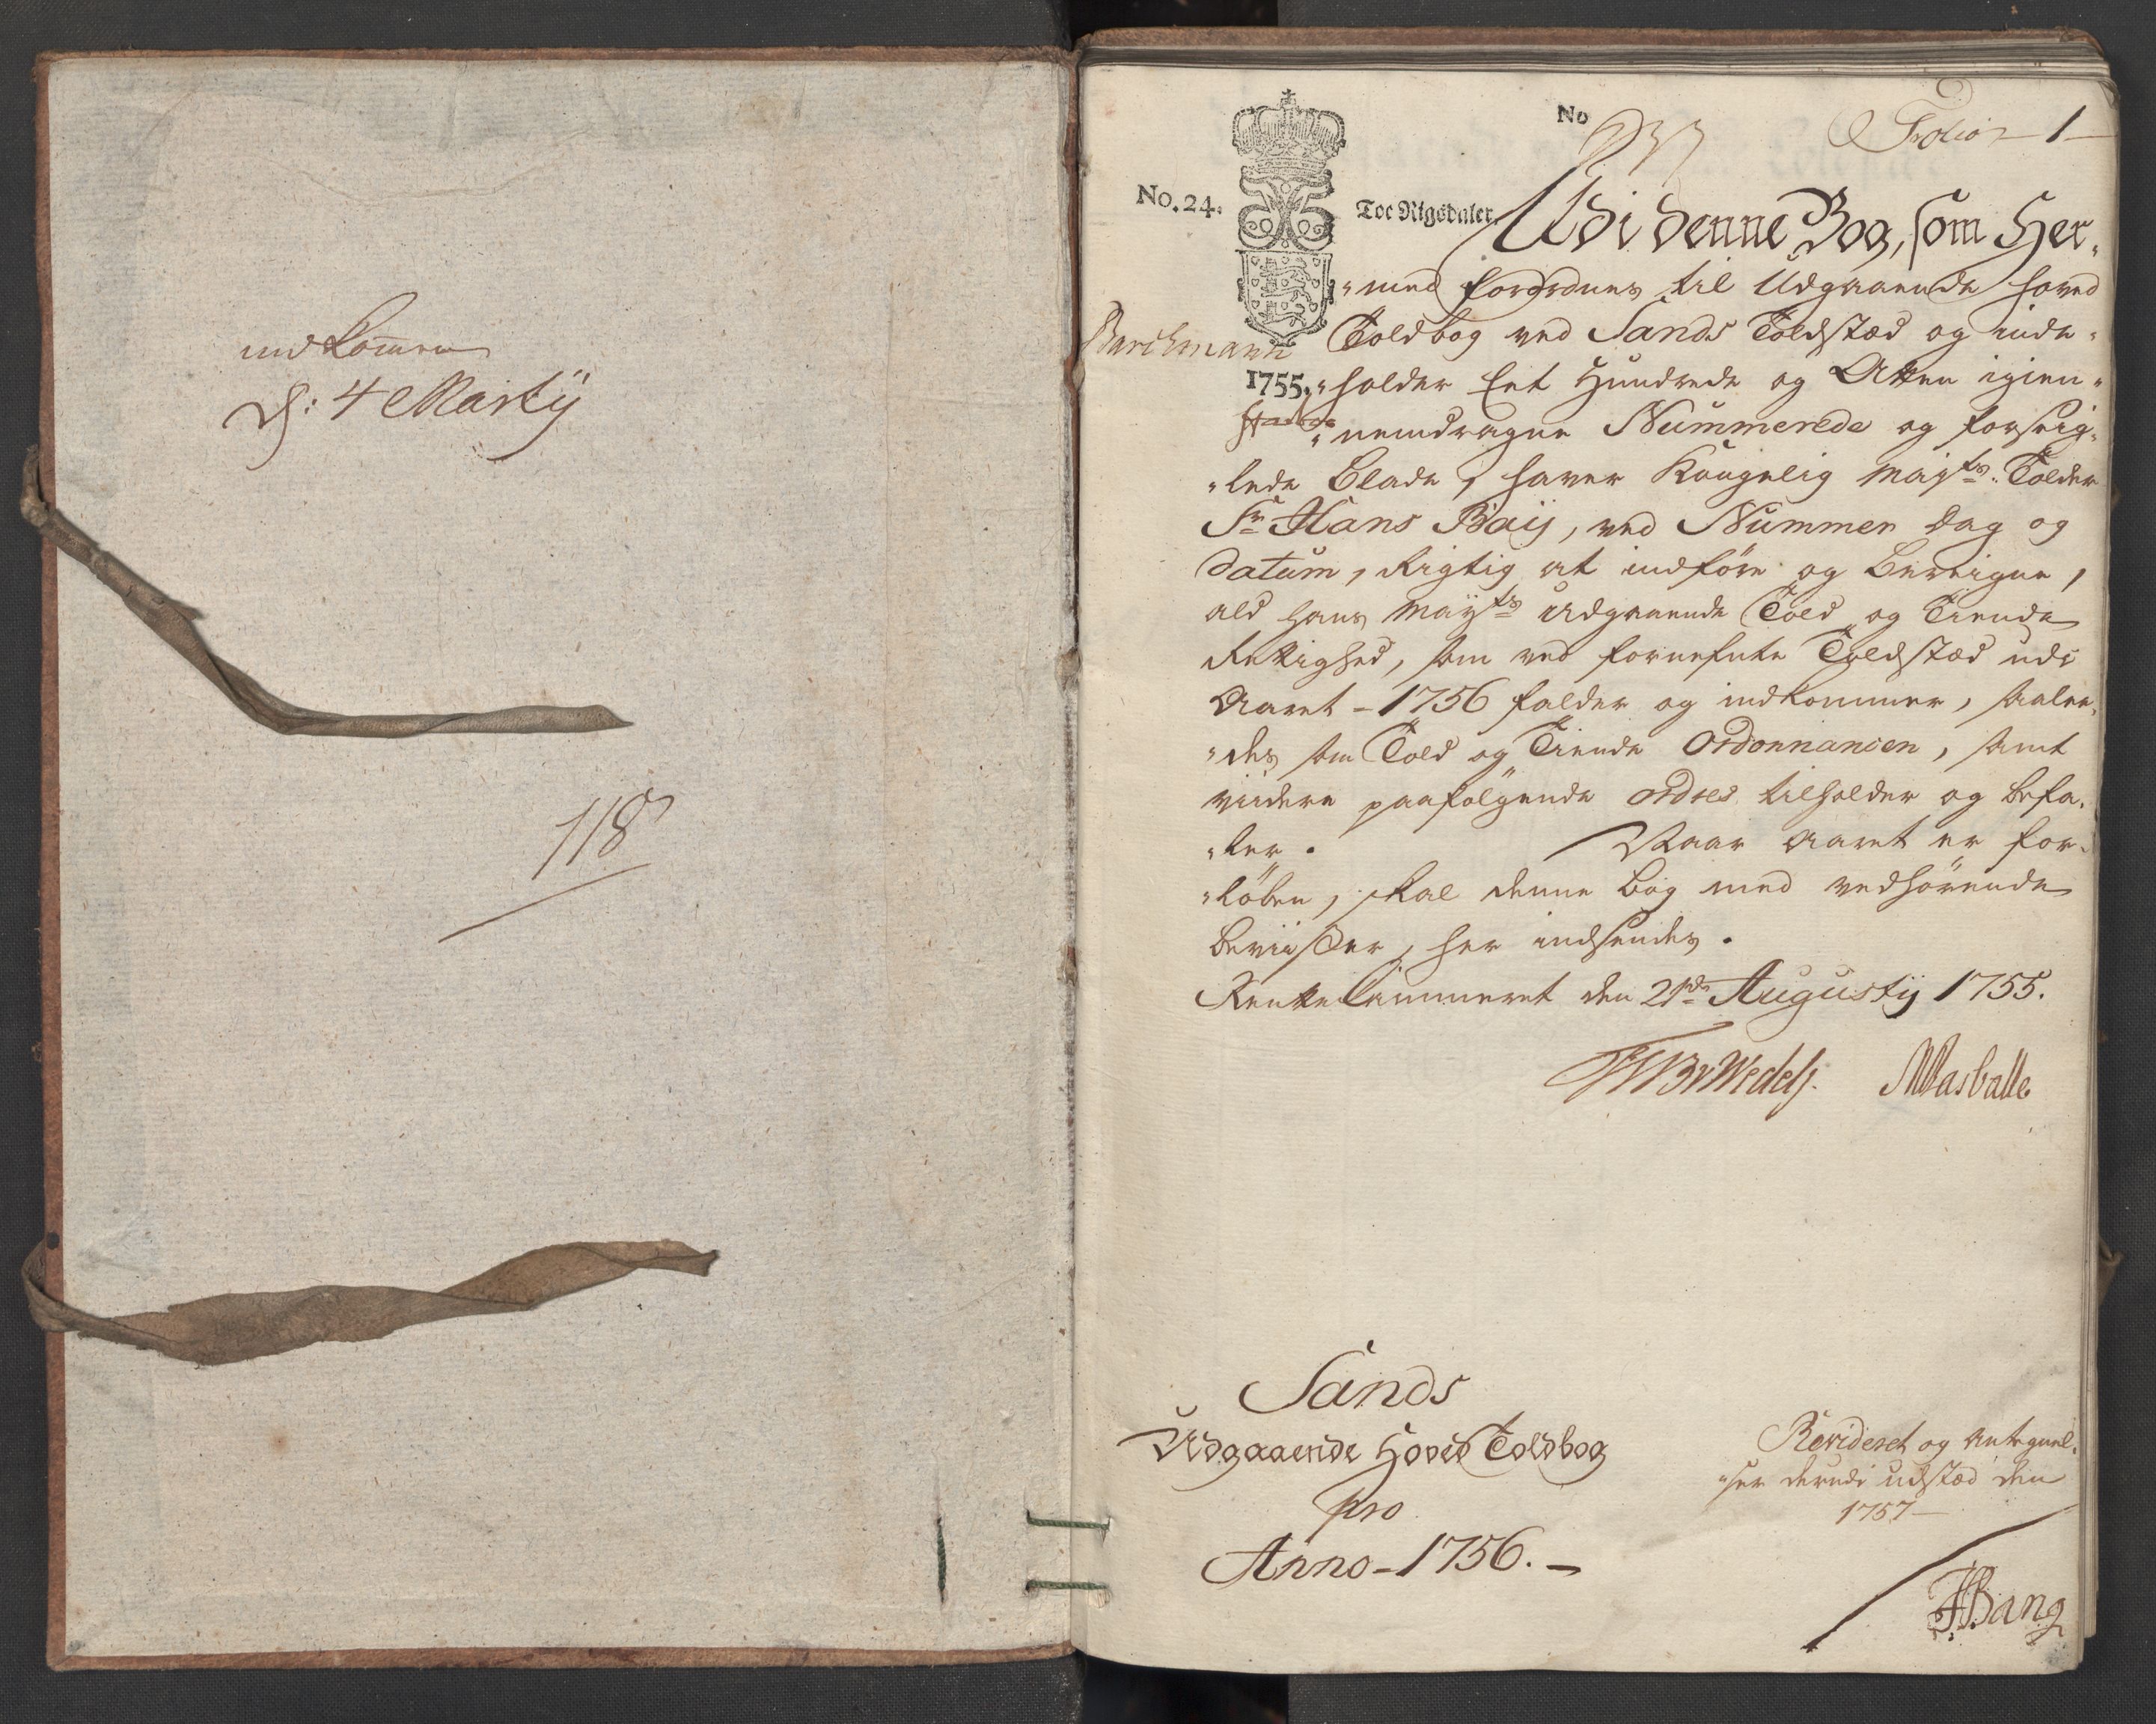 indkommen
d: 4 Martij
118
No
Folio 1
No. 24.
Toe Rigsdaler.
Udi denne Bog, som Her„
„med forordnes til Udgaaende hoved
Barchmann
Toldbog ved Sands Toldstæd og inde„
1755.
„holder Eet Hundrede og Atten igien„
„nemdragne Nummerede og forseig„
„lede Blade, haver Kongelig Mayts. Tolder
Sr Hans Baij, ved Nummer dag og
datum, Rigtig at indföre og beregne,
ald Hans Mayts Udgaaende Told og Tiende
Rettighed, som ved fornefnte Toldstæd udi
Aaret - 1756 falder og indkommer, saalee„
„des som Told og Tiende Ordonnancen, samt
viidere paafølgende ordres tilholder og befa„
„ler. Naar Aaret er for„
„löben, skal denne bog med vedhörende
beviiser, her indsendes.
RenteCammeret den 21de Augustij 1755.
Sands
Udgaaende Hoved Toldbog
pro
Anno - 1756. -
Revideret og Antegnel„
„ser derudi udstæd den
1757 -
Bang